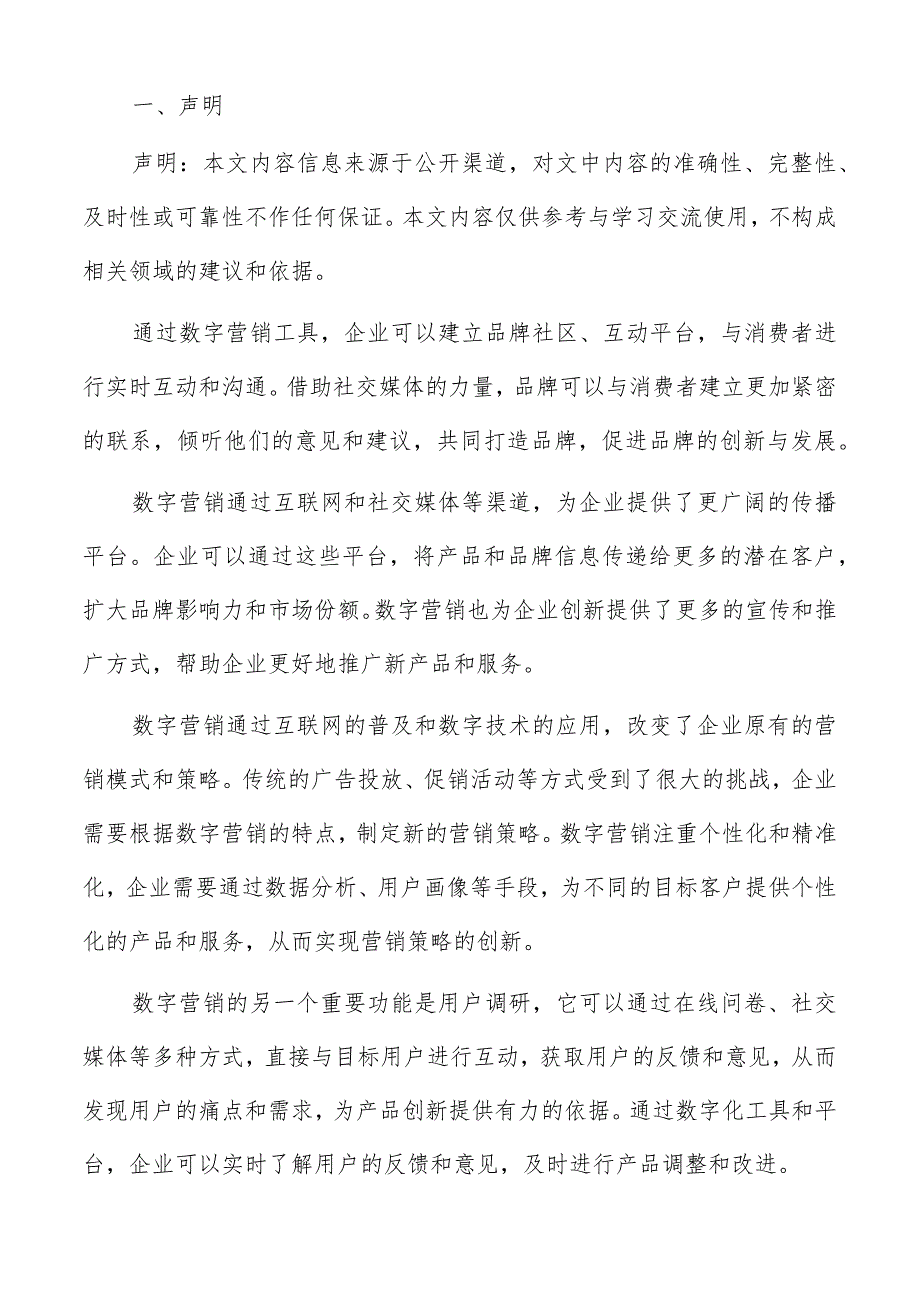 一、声明
声明：本文内容信息来源于公开渠道，对文中内容的准确性、完整性、
及时性或可靠性不作任何保证。本文内容仅供参考与学习交流使用，不构成
相关领域的建议和依据。
通过数字营销工具，企业可以建立品牌社区、互动平台，与消费者进
行实时互动和沟通。借助社交媒体的力量，品牌可以与消费者建立更加紧密
的联系，倾听他们的意见和建议，共同打造品牌，促进品牌的创新与发展。
数字营销通过互联网和社交媒体等渠道，为企业提供了更广阔的传播
平台。企业可以通过这些平台，将产品和品牌信息传递给更多的潜在客户，
扩大品牌影响力和市场份额。数字营销也为企业创新提供了更多的宣传和推
广方式，帮助企业更好地推广新产品和服务。
数字营销通过互联网的普及和数字技术的应用，改变了企业原有的营
销模式和策略。传统的广告投放、促销活动等方式受到了很大的挑战，企业
需要根据数字营销的特点，制定新的营销策略。数字营销注重个性化和精准
化，企业需要通过数据分析、用户画像等手段，为不同的目标客户提供个性
化的产品和服务，从而实现营销策略的创新。
数字营销的另一个重要功能是用户调研，它可以通过在线问卷、社交
媒体等多种方式，直接与目标用户进行互动，获取用户的反馈和意见，从而
发现用户的痛点和需求，为产品创新提供有力的依据。通过数字化工具和平
台，企业可以实时了解用户的反馈和意见，及时进行产品调整和改进。